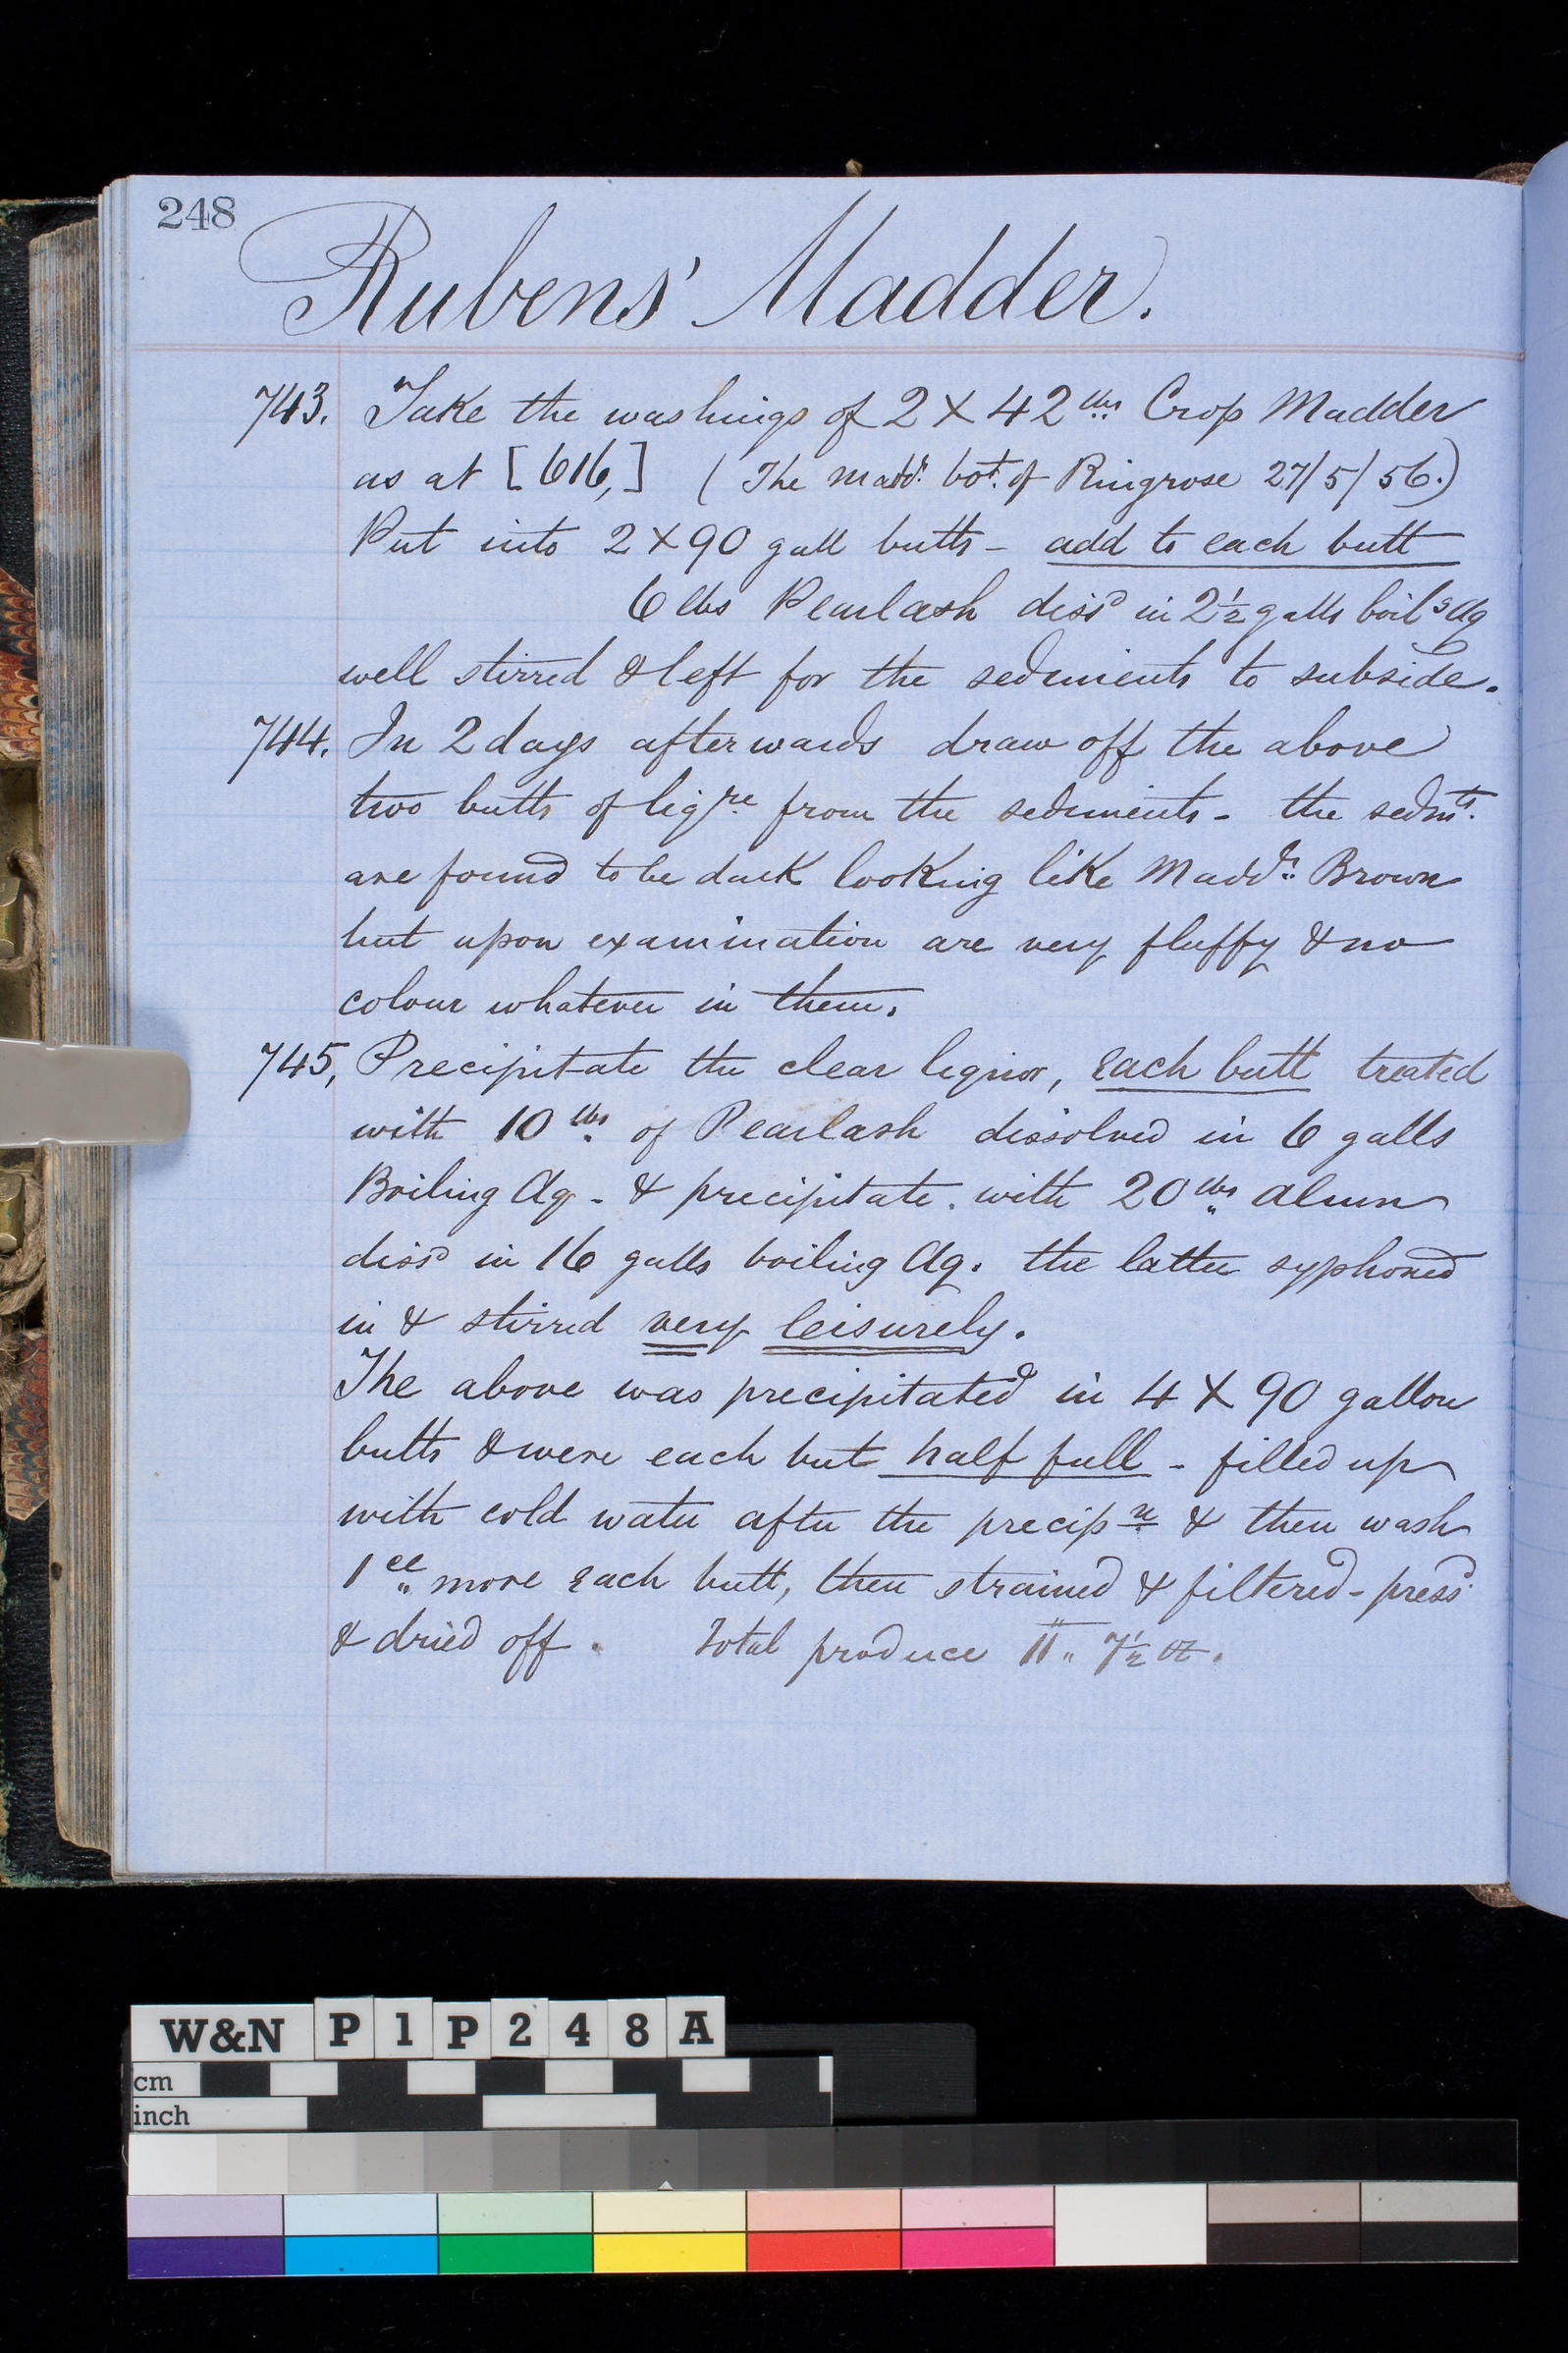 248
Rubens' Madder.
743. Take the washings of 2 X 42 lbs Crop Madder
as at [616,] (The madd.r bot. of Ringrose 27/5/56.)
Put into 2 X 90 gall butts - add to each butt
6 lbs Pearlash diss.d in 2½ galls boil.g Aq
well stirred & left for the sediments to subside.
744. In 2 days afterwards draw off the above
two butts of liq.re from the sediments - the sedm.ts
are found to be dark looking like Madd.r Brown
but upon examination are very fluffy & no
colour whatever in them.
745, Precipitate the clear liquor, each butt treated
with 10 lbs of Pearlash dissolved in 6 galls
Boiling Aq - & precipitate. with 20 lbs Alum
diss.d in 16 galls boiling Aq. the latter syphoned
in & stirred very leisurely.
The above was precipitated in 4 X 90 gallon
butts & were each but half full - filled up
with cold water after the precip.n & then wash
1.ce more each butt, then strained & filtered - press.d
& dried off. Total produce 11 " 7½ oz.
W&N P1P248A
cm
inch